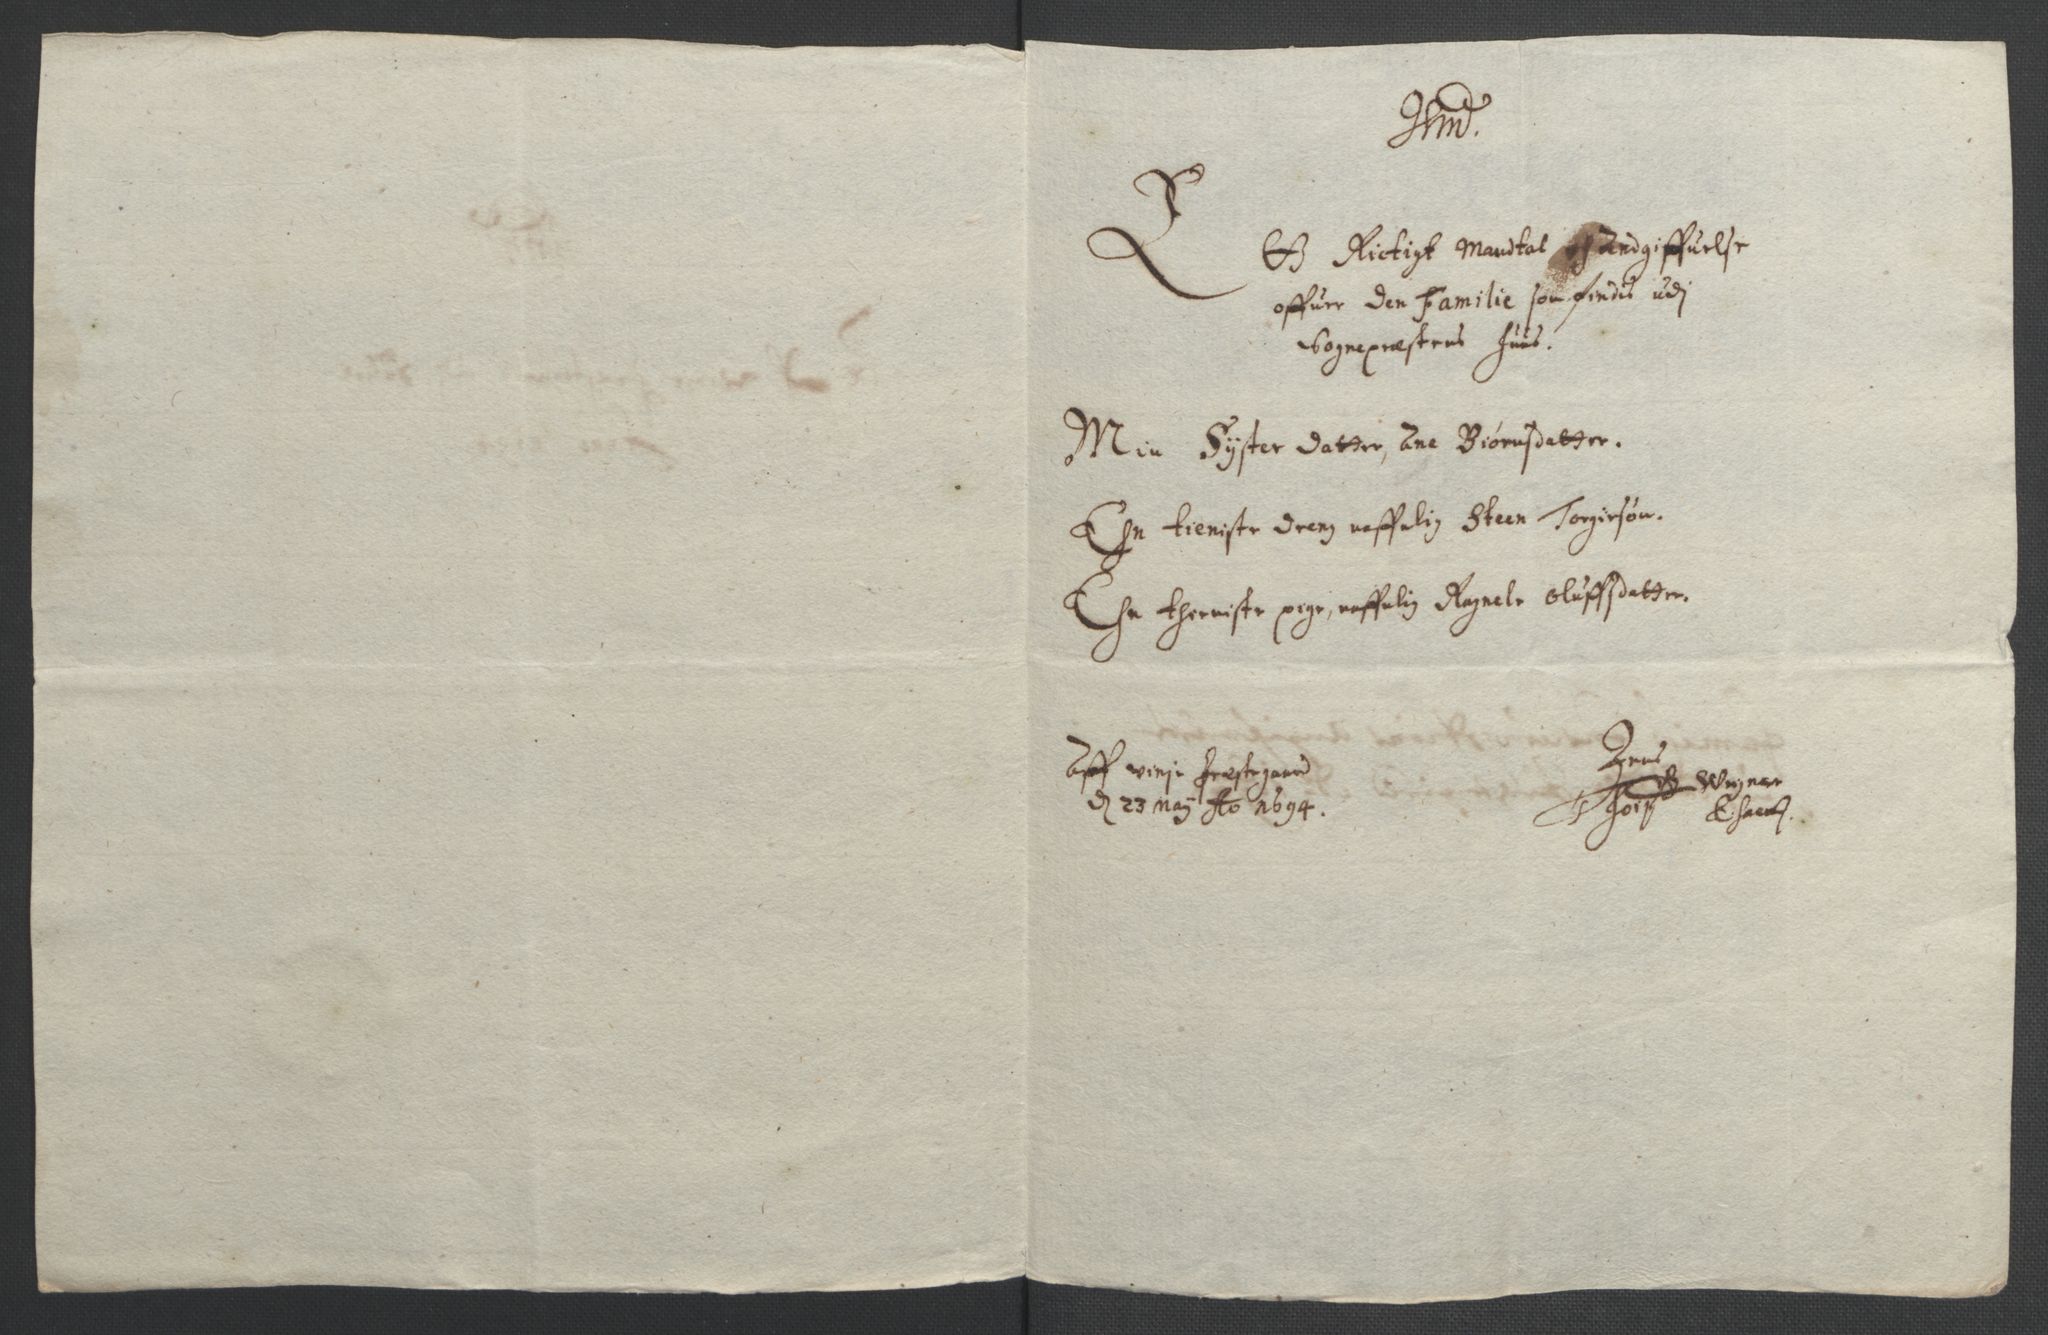 Et Rictigt Mandtal och Andgiffuelse
offuer den Familie som findis udj
Sognepræstens huus.
Min Syster datter, Ane Biørnsdatter.
Een tieniste dreng naffnlig Steen Torgirsøn.
Een thieniste pige, naffnlig Ragnele Oluffsdatter.
Aff vinje Præstegaard
d 23 Maÿ Ao 1694.